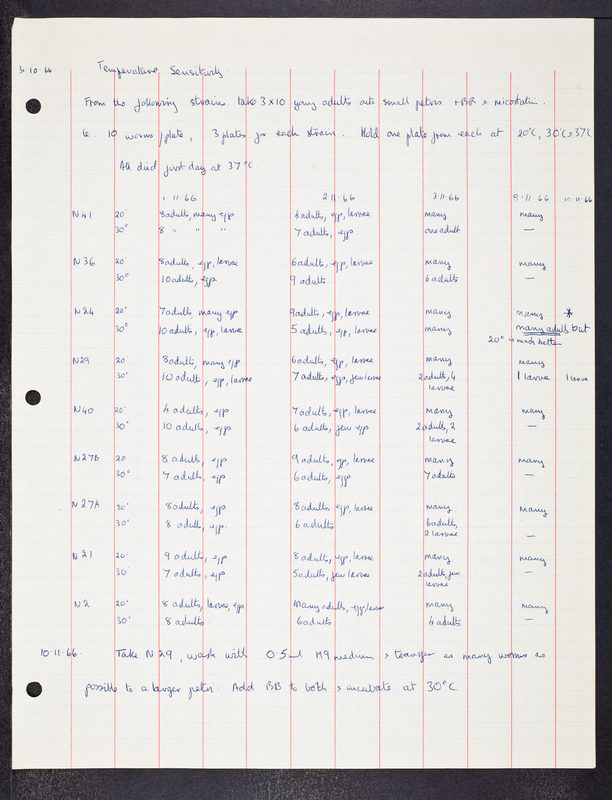 31·10·66 Temperature Sensitivity
From the following strains take 3×10 young adults onto small petris + BB + micostatin.
ie. 10 worms/plate, 3 plates for each strain. Hold one plate from each at 20°C, 30°C + 37°C
All died first day at 37°C
1·11·66 2·11·66 3·11·66 9·11·66 10·11·66
N41 20° 8 adults, many eggs 6 adults, egg, larvae many many
30° 8 " " " 7 adults, eggs one adult —
N36 20° 8 adults, egg, larvae 6 adults, egg, larvae many many
30° 10 adults, eggs 9 adults 6 adults —
N24 20° 7 adults, many egg 9 adults, egg, larvae many many *
30° 10 adults, egg, larvae 5 adults, egg, larvae many many adults but
20° is much better
N29 20° 8 adults, many egg 6 adults, egg, larvae many many
30° 10 adult, egg, larvae 7 adults, eggs, few larvae 2 adults, 4 1 larvae 1 larvae
larvae
N40 20° 4 adults, eggs 7 adults, egg, larvae many many
30° 10 adults, eggs 6 adults, few eggs 2 adults, 2 —
larvae
N27B 20° 8 adults, eggs 9 adults, egg, larvae many many
30° 7 adults, eggs 6 adults, eggs 7 adults —
N27A 20° 8 adults, eggs 8 adults, egg, larvae many many
30° 8 adults, eggs. 6 adults 6 adults,
2 larvae —
N21 20° 9 adults, eggs 8 adults, egg, larvae many many
30° 7 adults, eggs 5 adults, few larvae 2 adults, few —
larvae
N2 20° 8 adults, larvae, eggs Many adults, egg, larvae many many
30° 8 adults. 6 adults 4 adults —
10·11·66. Take N29, wash with 0·5ml M9 medium + transfer as many worms as
possible to a larger petri. Add BB to both + incubate at 30°C